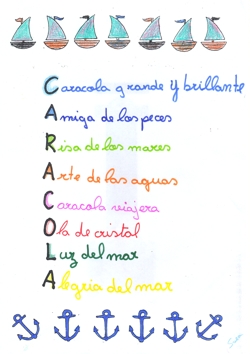 Caracola grande y brillante
Amiga de los peces
Risa de los mares
Arte de las aguas
Caracola viajera
Ola de cristal
Luz del mar
Alegria del mar